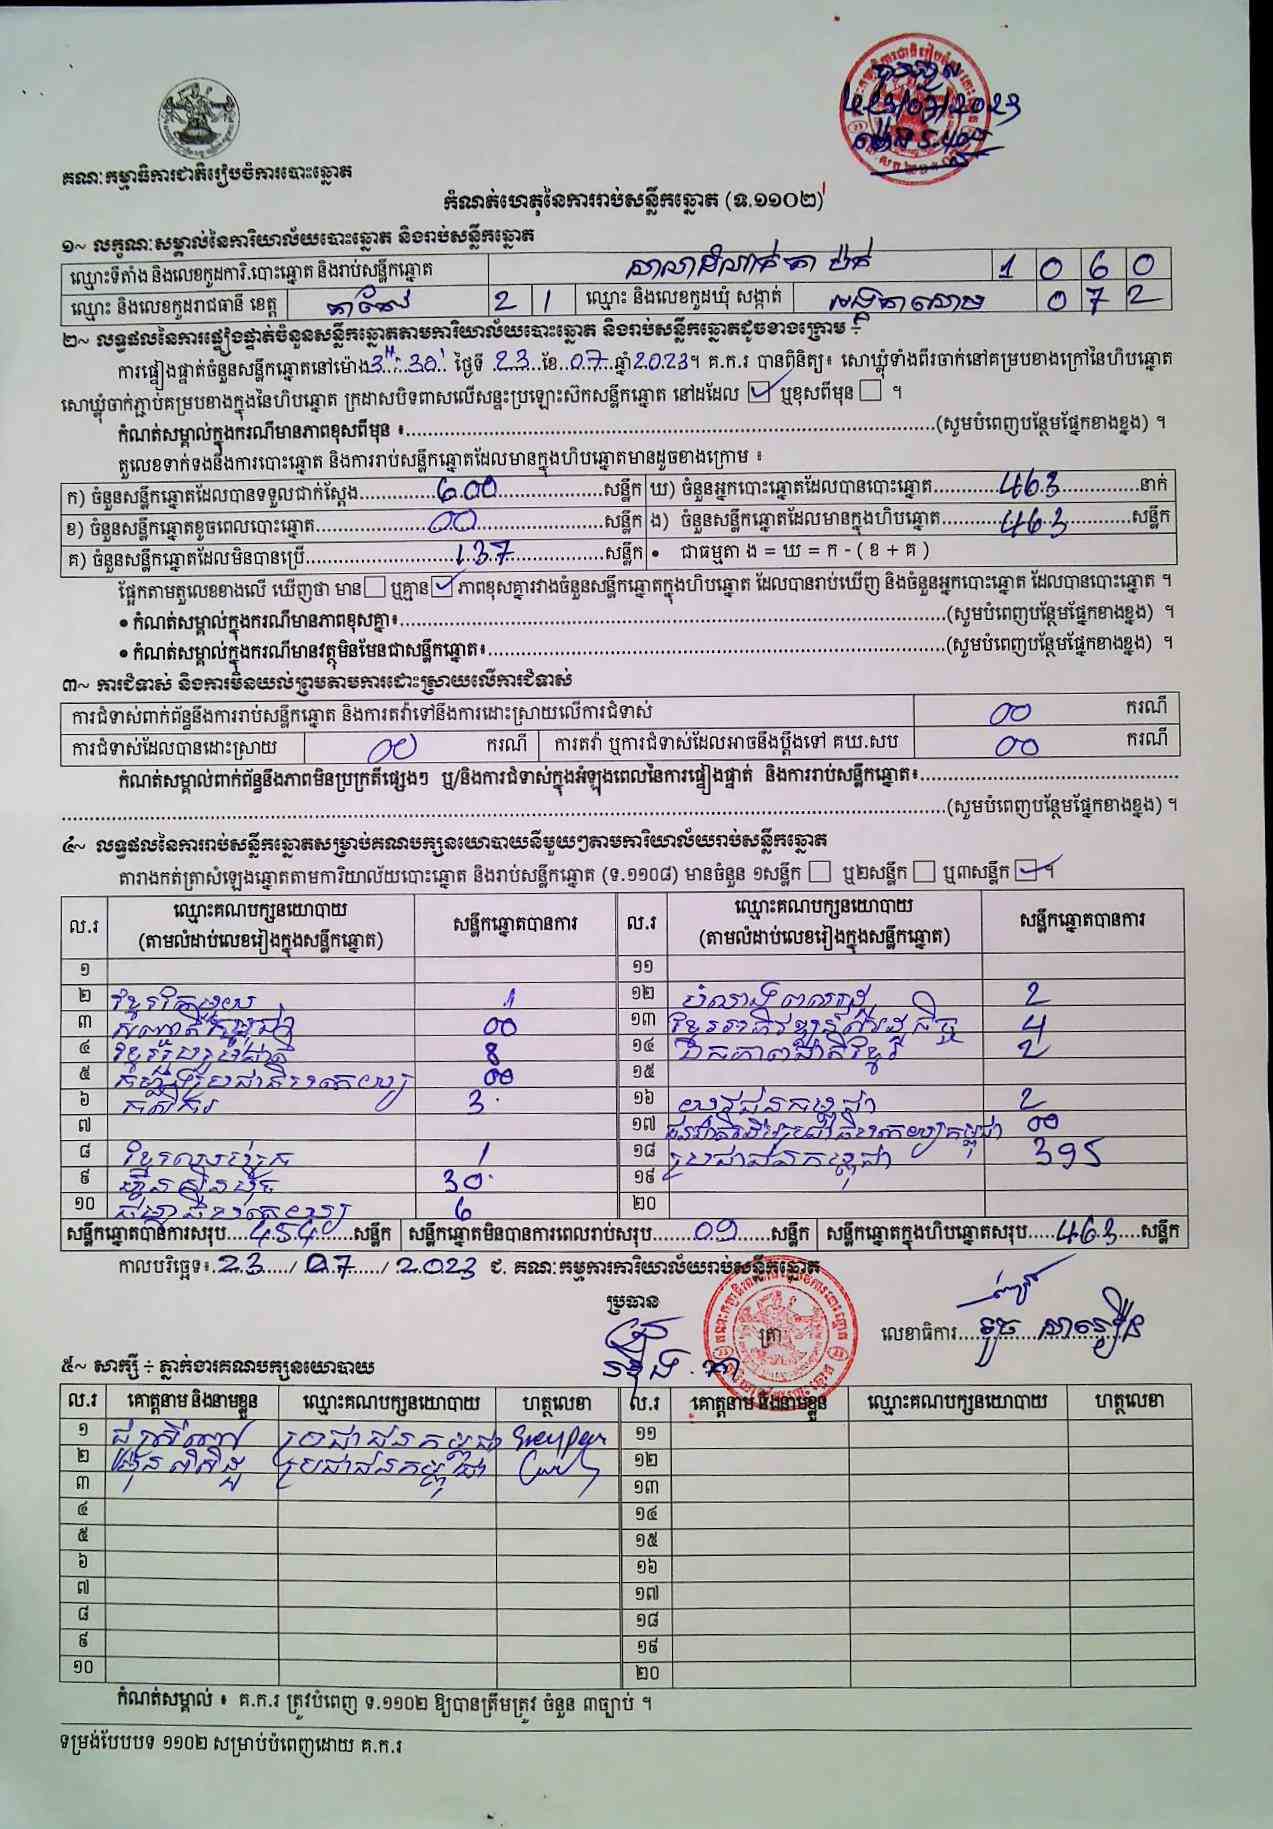 គណៈកម្មាធិការជាតិរៀបចំការបោះឆ្នោត
កំណត់ហេតុនៃការរាប់សន្លឹកឆ្នោត (ទ.១១០២)
១~ លក្ខណៈសម្គាល់នៃការិយាល័យបោះឆ្នោត និងរាប់សន្លឹកឆ្នោត
ឈ្មោះទីតាំង និងលេខកូដការិ.បោះឆ្នោត និងរាប់សន្លឹកឆ្នោត 1 0 6 0
ឈ្មោះ និងលេខកូដរាជធានី ខេត្ត តាកែវ 2 1 ឈ្មោះ និងលេខកូដឃុំ សង្កាត់ 0 7 2
២~ លទ្ធផលនៃការផ្ទៀងផ្ទាត់ចំនួនសន្លឹកឆ្នោតតាមការិយាល័យបោះឆ្នោត និងរាប់សន្លឹកឆ្នោតដូចខាងក្រោម ÷
ការផ្ទៀងផ្ទាត់ចំនួនសន្លឹកឆ្នោតនៅម៉ោង 3H:30' ថ្ងៃទី 23 ខែ 07 ឆ្នាំ 2023។ គ.ក.រ បានពិនិត្យ៖ សោឃ្លុំទាំងពីរចាក់នៅគម្របខាងក្រៅនៃហិបឆ្នោត
សោឃ្លុំចាក់ភ្ជាប់គម្របខាងក្នុងនៃហិបឆ្នោត ក្រដាសបិទពាសលើសន្ទះប្រឡោះស៊កសន្លឹកឆ្នោត នៅដដែល ☑ ឬខុសពីមុន ☐ ។
កំណត់សម្គាល់ក្នុងករណីមានភាពខុសពីមុន ៖ (សូមបំពេញបន្ថែមផ្នែកខាងខ្នង) ។
តួលេខទាក់ទងនឹងការបោះឆ្នោត និងការរាប់សន្លឹកឆ្នោតដែលមានក្នុងហិបឆ្នោតមានដូចខាងក្រោម ៖
ក) ចំនួនសន្លឹកឆ្នោតដែលបានទទួលជាក់ស្តែង 600 សន្លឹក ឃ) ចំនួនអ្នកបោះឆ្នោតដែលបានបោះឆ្នោត 463 នាក់
ខ) ចំនួនសន្លឹកឆ្នោតខូចពេលបោះឆ្នោត 00 សន្លឹក ង) ចំនួនសន្លឹកឆ្នោតដែលមានក្នុងហិបឆ្នោត 463 សន្លឹក
គ) ចំនួនសន្លឹកឆ្នោតដែលមិនបានប្រើ 137 សន្លឹក • ជាធម្មតា ង = ឃ = ក - ( ខ + គ )
ផ្អែកតាមតួលេខខាងលើ ឃើញថា មាន ☐ ឬគ្មាន ☑ ភាពខុសគ្នារវាងចំនួនសន្លឹកឆ្នោតក្នុងហិបឆ្នោត ដែលបានរាប់ឃើញ និងចំនួនអ្នកបោះឆ្នោត ដែលបានបោះឆ្នោត ។
• កំណត់សម្គាល់ក្នុងករណីមានភាពខុសគ្នា៖ (សូមបំពេញបន្ថែមផ្នែកខាងខ្នង) ។
• កំណត់សម្គាល់ក្នុងករណីមានវត្ថុមិនមែនជាសន្លឹកឆ្នោត៖ (សូមបំពេញបន្ថែមផ្នែកខាងខ្នង) ។
៣~ ការជំទាស់ និងការមិនយល់ព្រមតាមការដោះស្រាយលើការជំទាស់
ការជំទាស់ពាក់ព័ន្ធនឹងការរាប់សន្លឹកឆ្នោត និងការតវ៉ាទៅនឹងការដោះស្រាយលើការជំទាស់ 00 ករណី
ការជំទាស់ដែលបានដោះស្រាយ 00 ករណី ការតវ៉ា ឬការជំទាស់ដែលអាចនឹងប្តឹងទៅ គឃ.សប 00 ករណី
កំណត់សម្គាល់ពាក់ព័ន្ធនឹងភាពមិនប្រក្រតីផ្សេងៗ ឬ/និងការជំទាស់ក្នុងអំឡុងពេលនៃការផ្ទៀងផ្ទាត់ និងការរាប់សន្លឹកឆ្នោត៖
(សូមបំពេញបន្ថែមផ្នែកខាងខ្នង) ។
៤~ លទ្ធផលនៃការរាប់សន្លឹកឆ្នោតសម្រាប់គណបក្សនយោបាយនីមួយៗតាមការិយាល័យរាប់សន្លឹកឆ្នោត
តារាងកត់ត្រាសំឡេងឆ្នោតតាមការិយាល័យបោះឆ្នោត និងរាប់សន្លឹកឆ្នោត (ទ.១១០៨) មានចំនួន ១សន្លឹក ☐ ឬ២សន្លឹក ☐ ឬ៣សន្លឹក ☑ ។
ល.រ ឈ្មោះគណបក្សនយោបាយ (តាមលំដាប់លេខរៀងក្នុងសន្លឹកឆ្នោត) សន្លឹកឆ្នោតបានការ ល.រ ឈ្មោះគណបក្សនយោបាយ (តាមលំដាប់លេខរៀងក្នុងសន្លឹកឆ្នោត) សន្លឹកឆ្នោតបានការ
១ ១១
២ ខ្មែរតែមួយ 1 ១២ 2
៣ 00 ១៣ 4
៤ ខ្មែររួបរួមជាតិ 8 ១៤ ឯកភាពជាតិខ្មែរ 2
៥ កម្លាំងប្រជាធិបតេយ្យ 00 ១៥
៦ កសិករ 3 ១៦ យុវជនកម្ពុជា 2
៧ ១៧ 00
៨ 1 ១៨ ប្រជាជនកម្ពុជា 395
៩ ហ្វ៊ុនស៊ិនប៉ិច 30 ១៩
១០ 6 ២០
សន្លឹកឆ្នោតបានការសរុប 454 សន្លឹក សន្លឹកឆ្នោតមិនបានការពេលរាប់សរុប 09 សន្លឹក សន្លឹកឆ្នោតក្នុងហិបឆ្នោតសរុប 463 សន្លឹក
កាលបរិច្ឆេទ៖ 23 / 07 / 2023 ជ. គណៈកម្មការការិយាល័យរាប់សន្លឹកឆ្នោត
ប្រធាន
ត្រា
លេខាធិការ
៥~ សាក្សី ÷ ភ្នាក់ងារគណបក្សនយោបាយ
ល.រ គោត្តនាម និងនាមខ្លួន ឈ្មោះគណបក្សនយោបាយ ហត្ថលេខា ល.រ គោត្តនាម និងនាមខ្លួន ឈ្មោះគណបក្សនយោបាយ ហត្ថលេខា
១ ប្រជាជនកម្ពុជា ១១
២ ប្រជាជនកម្ពុជា ១២
៣ ១៣
៤ ១៤
៥ ១៥
៦ ១៦
៧ ១៧
៨ ១៨
៩ ១៩
១០ ២០
កំណត់សម្គាល់ ៖ គ.ក.រ ត្រូវបំពេញ ទ.១១០២ ឱ្យបានត្រឹមត្រូវ ចំនួន ៣ច្បាប់ ។
ទម្រង់បែបបទ ១១០២ សម្រាប់បំពេញដោយ គ.ក.រ